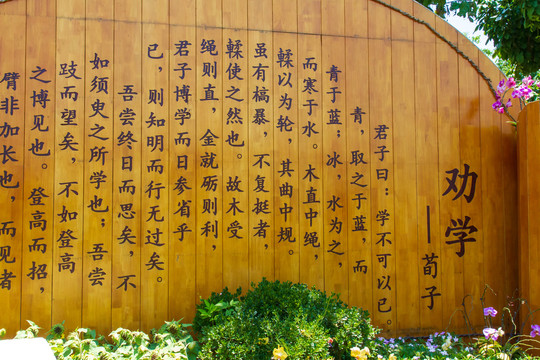 劝学
——荀子
君子曰：学不可以已。
青，取之于蓝，而
青于蓝；冰，水为之，
而寒于水。木直中绳，
輮以为轮，其曲中规。
虽有槁暴，不复挺者，
輮使之然也。故木受
绳则直，金就砺则利，
君子博学而日参省乎
已，则知明而行无过矣。
吾尝终日而思矣，不
如须臾之所学也；吾尝
跂而望矣，不如登高
之博见也。登高而招，
臂非加长也，而见者